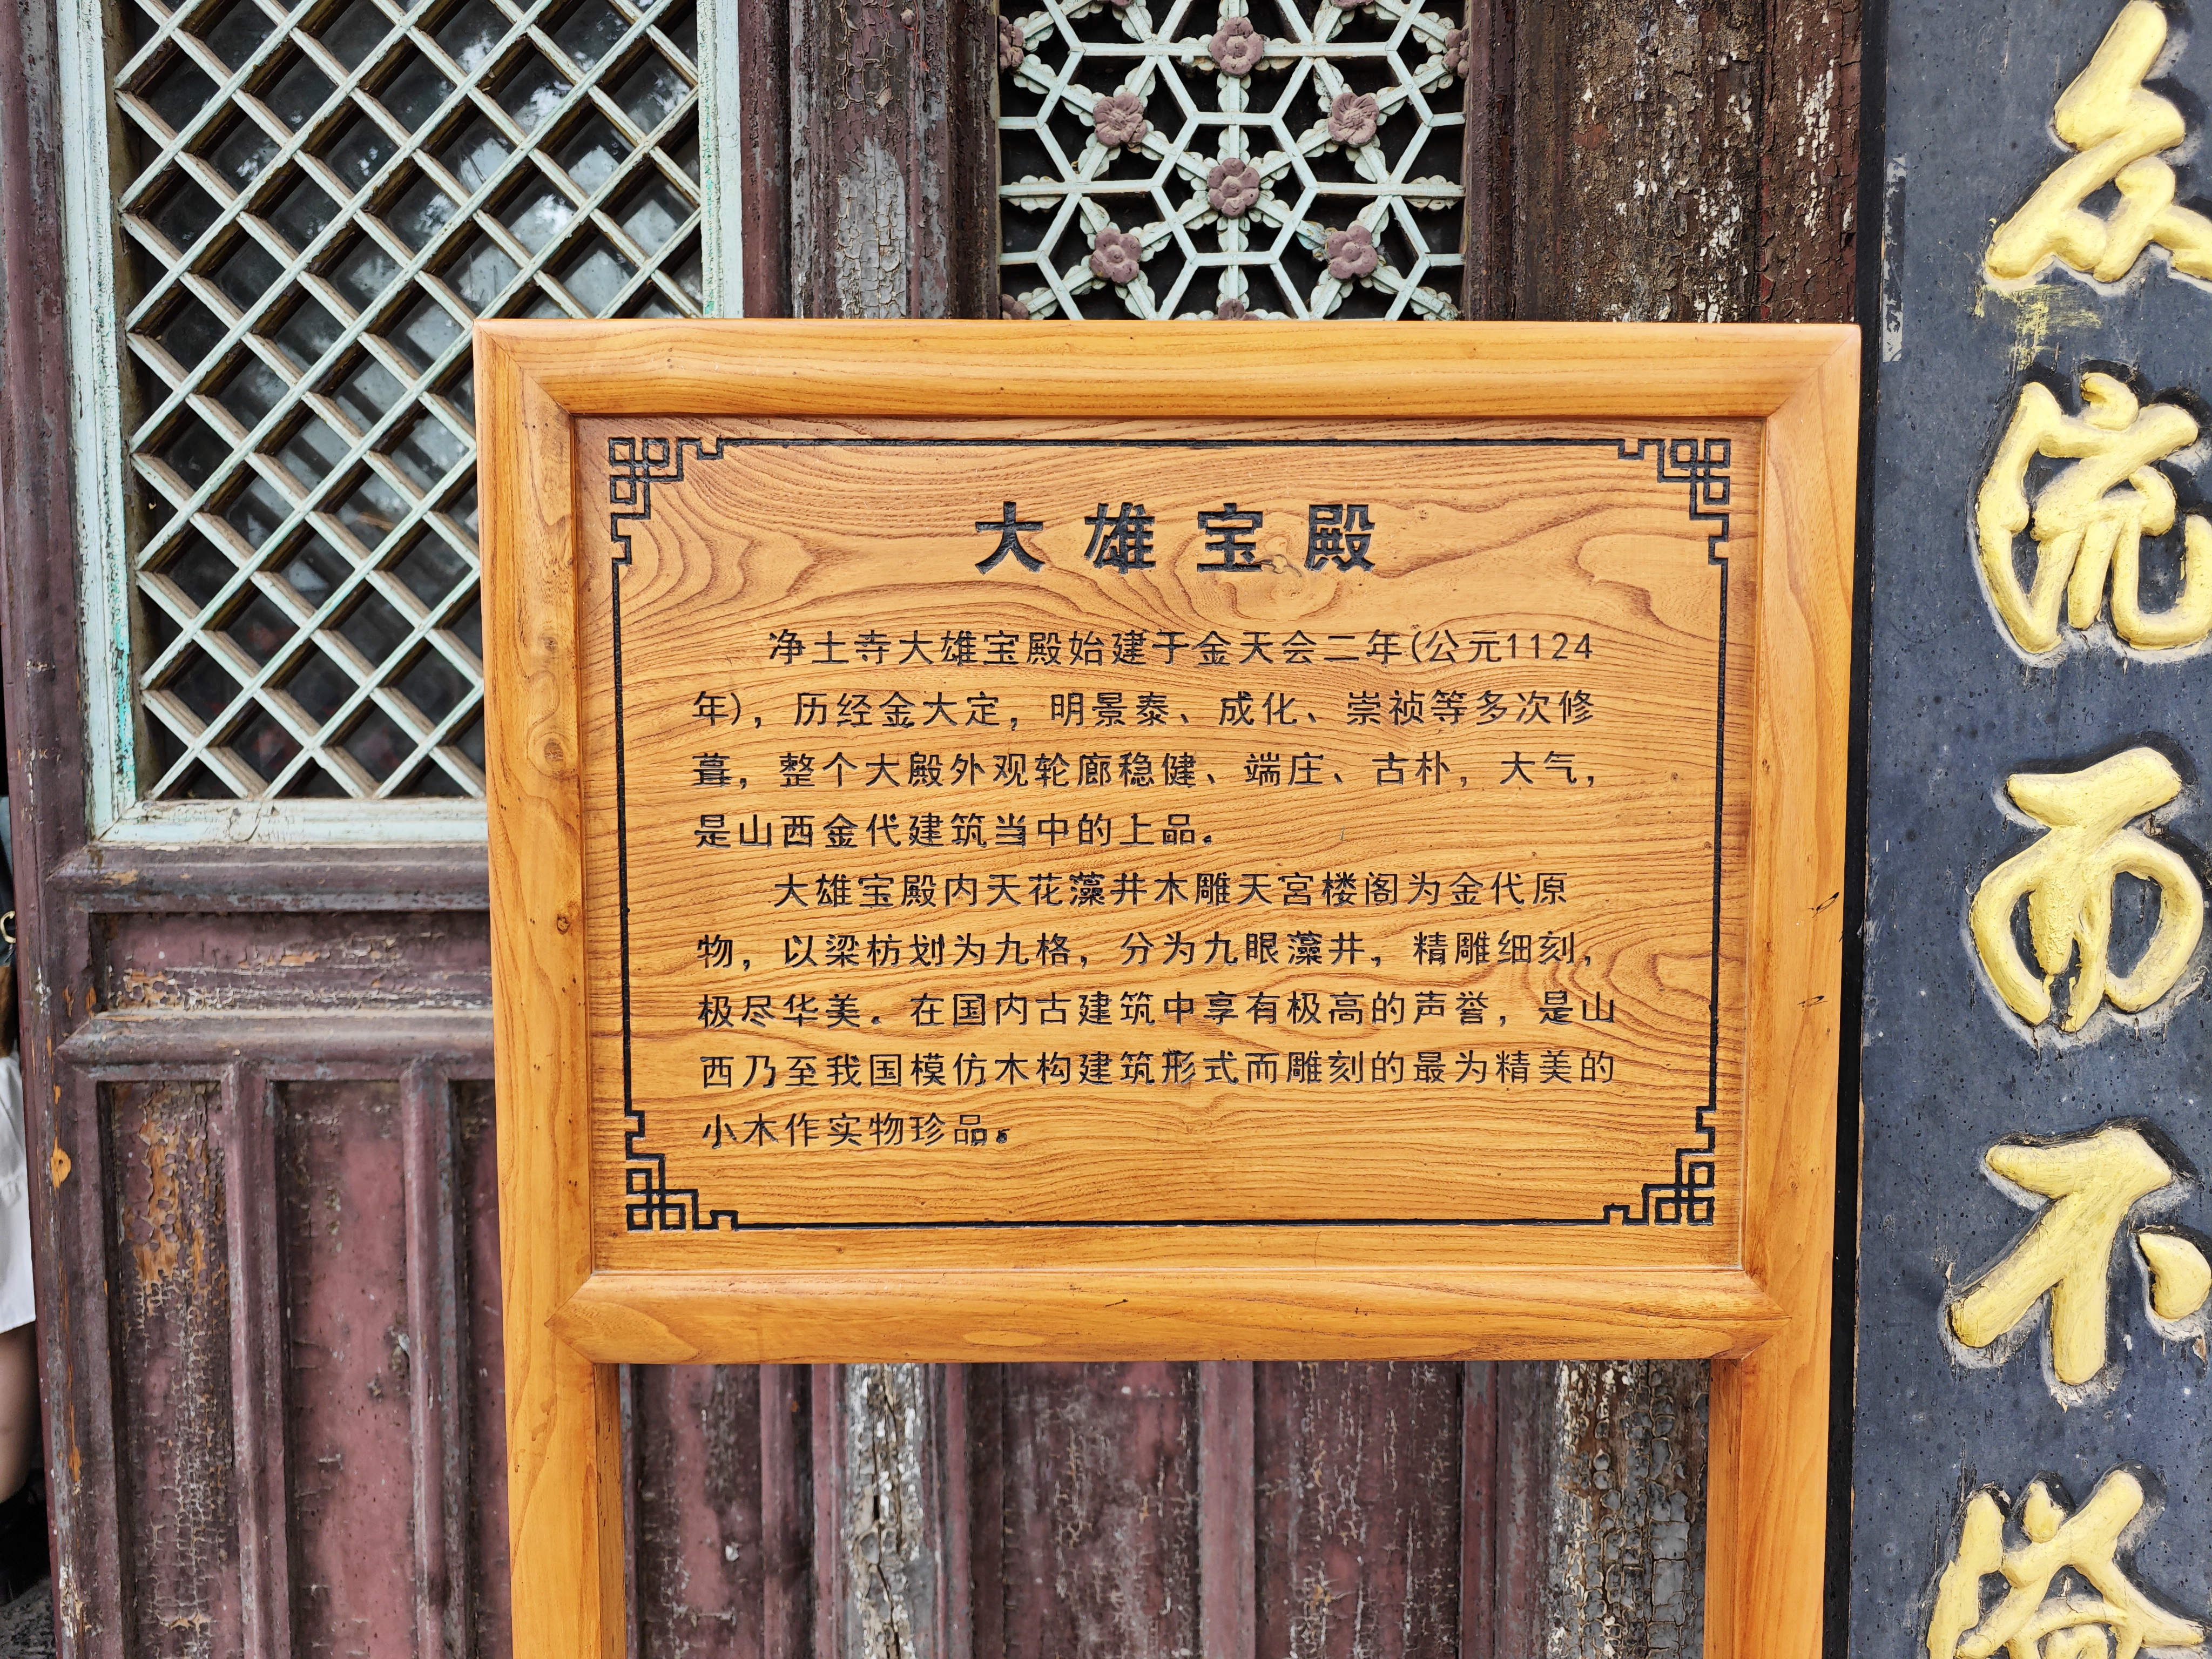 大雄宝殿
净土寺大雄宝殿始建于金天会二年(公元1124
年)，历经金大定，明景泰、成化、崇祯等多次修
葺，整个大殿外观轮廊稳健、端庄、古朴，大气，
是山西金代建筑当中的上品。
大雄宝殿内天花藻井木雕天宫楼阁为金代原
物，以梁枋划为九格，分为九眼藻井，精雕细刻，
极尽华美。在国内古建筑中享有极高的声誉，是山
西乃至我国模仿木构建筑形式而雕刻的最为精美的
小木作实物珍品。
流而不